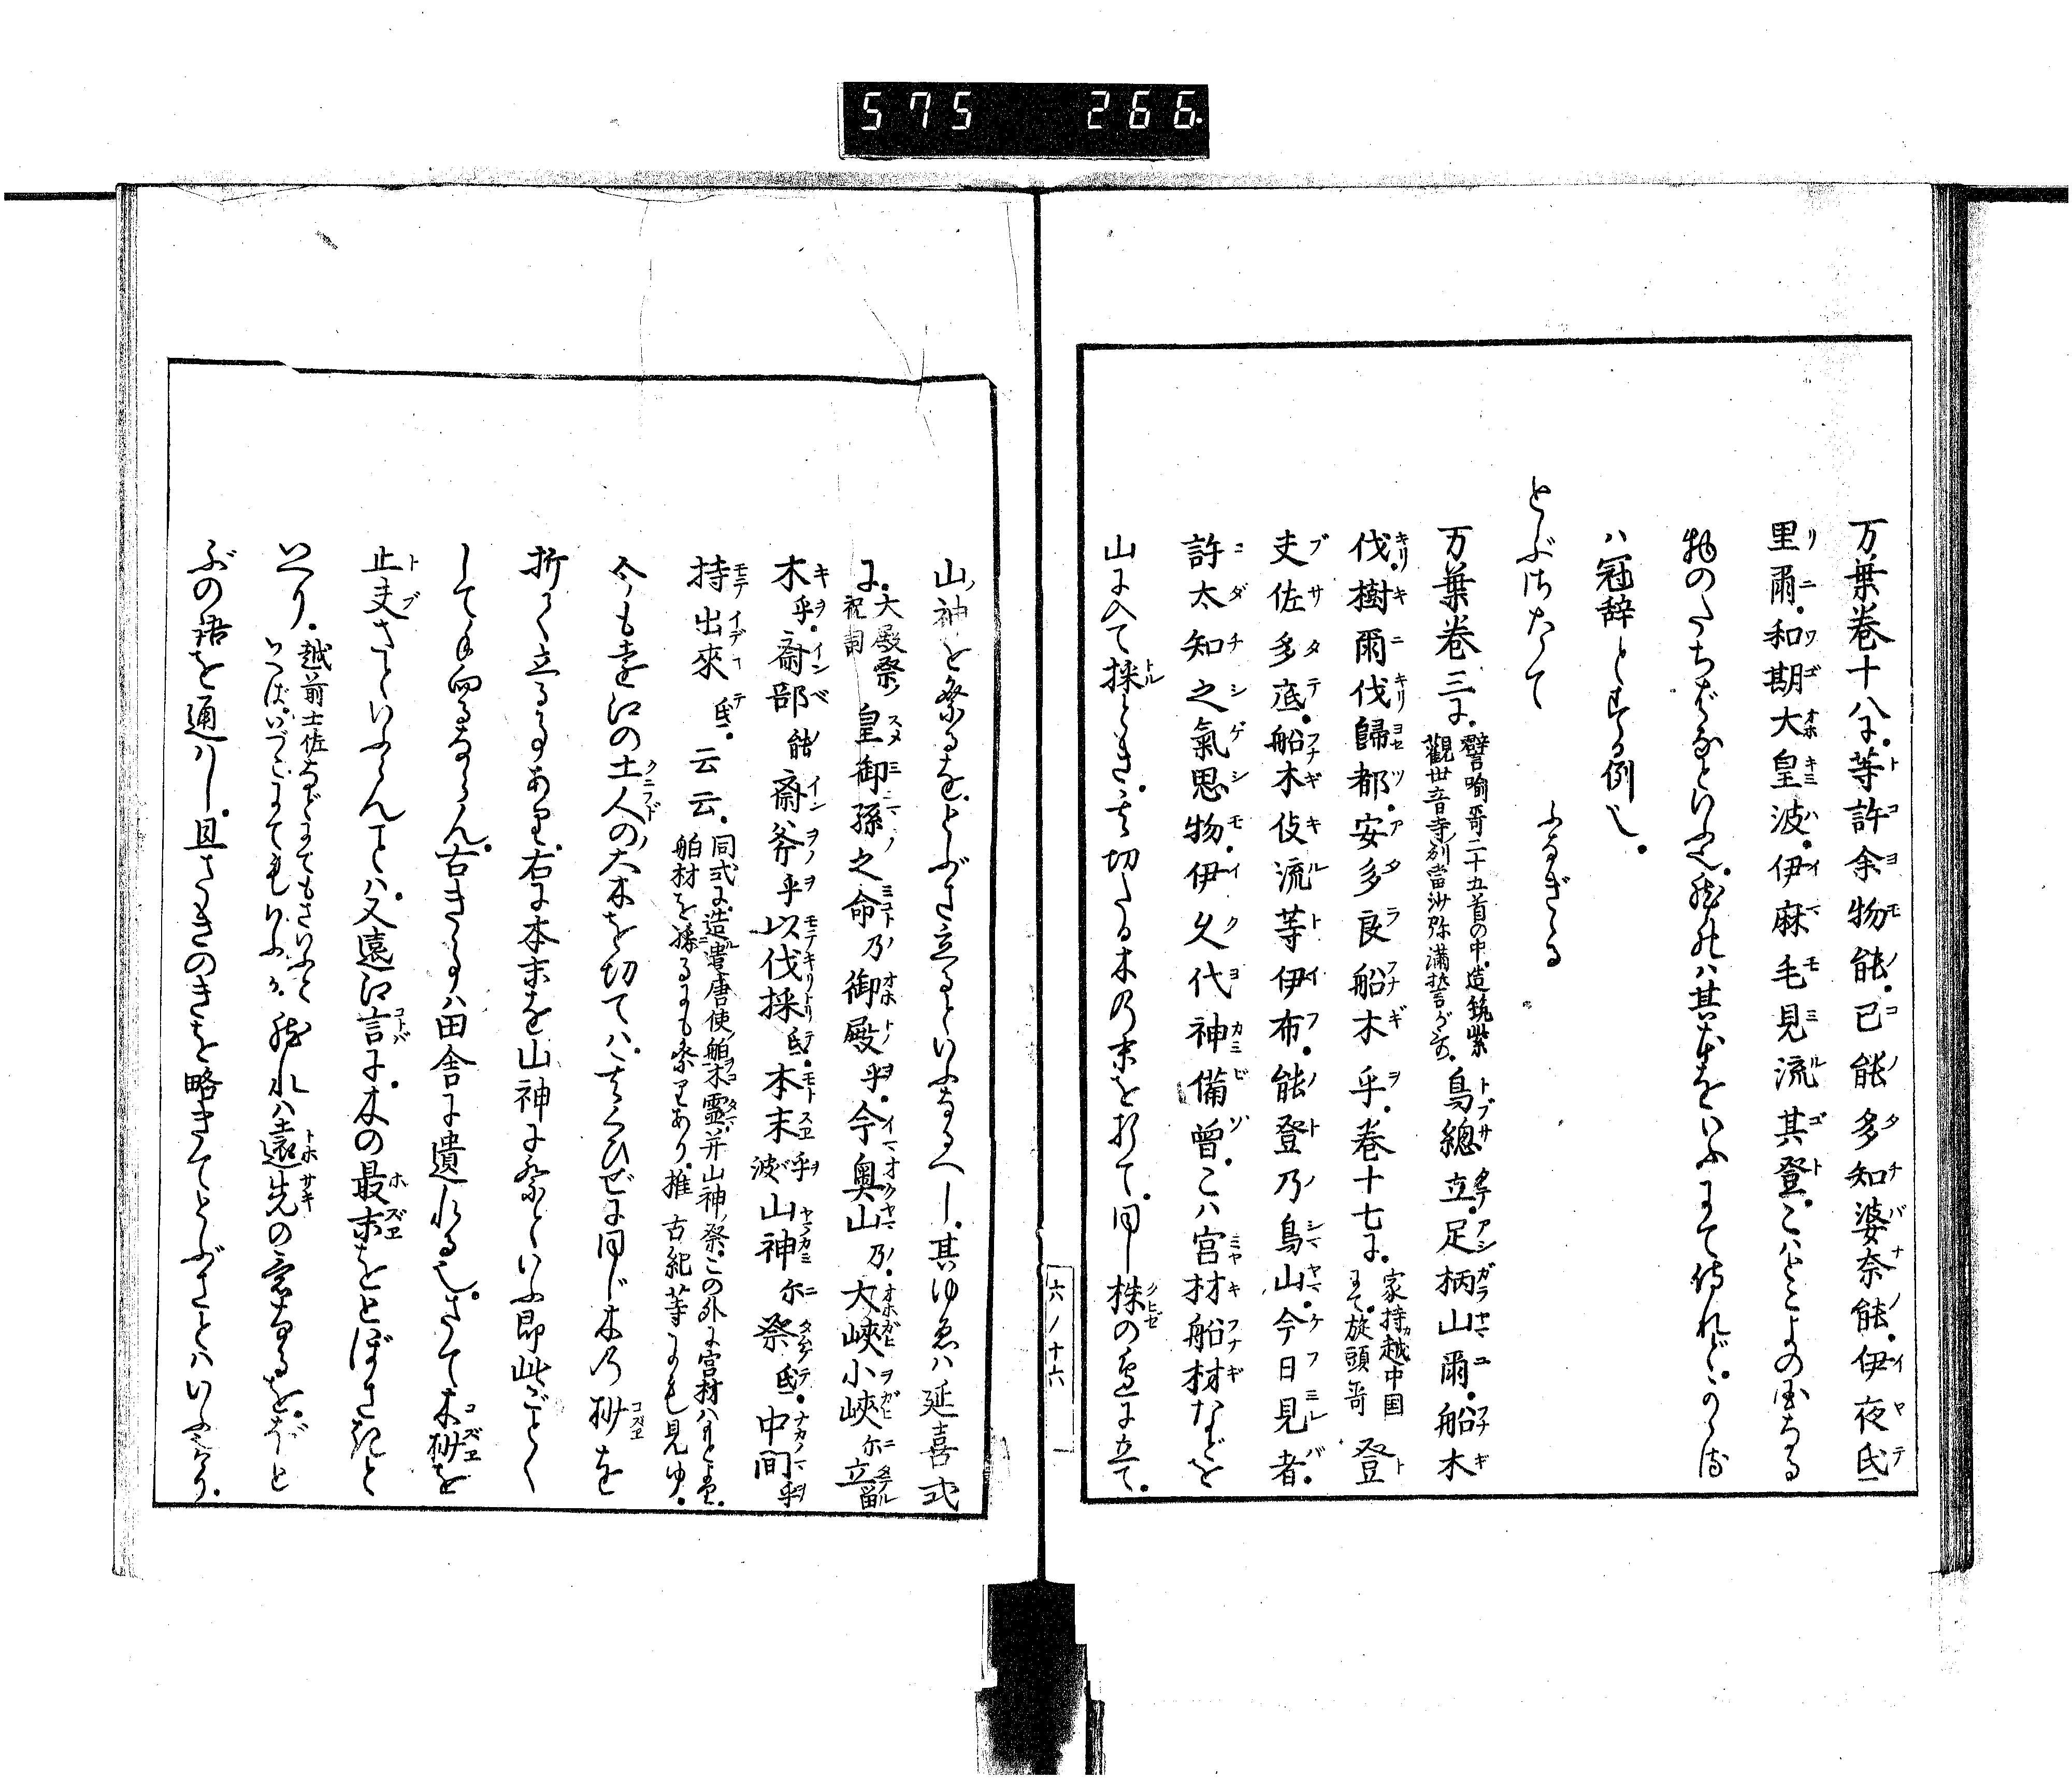 575 266
万葉巻十八に。等許余物能。已能多知婆奈能。伊夜氐
里爾。和期大皇波。伊麻毛見流其登。こハとこよの国なる
物のたちばなといふ也。
ハ冠辞とする例也。
とぶさたて ふなぎきる
万葉巻三に。譬喩哥二十五首の中。造筑紫
觀世音寺別當沙弥満誓がうた。鳥總立。足柄山爾。船木
伐。樹爾伐歸都。安多良船木乎。巻十七に。家持越中国
にて旋頭哥登
夫佐多底。船木伎流等伊布。能登乃島山。今日見者。
許太知之氣思物。伊久代神備曾。こハ宮材船材などを
山に入て採とき。其切たる木乃末を折て。同し株の邊に立て。
六ノ十六 一
山神を祭るを。とぶさ立るといふなるへし。其ゆゑハ延喜式
に。大殿祭
祝詞皇御孫之命乃御殿乎。今奥山乃。大峽小峽尓立留
木乎。齋部能齋斧乎以伐採氐。本末乎波山神尓祭氐。中間乎
持出來氐。云云。同式に。造遣唐使舶木霊并山神祭。この外に宮材ハもとより。
舶材を採るにも祭りあり。推古紀等にも見ゆ。
今も遠江の土人の大木を切てハ。其くひぜに同じ木乃杪を
折て立る事あり。右に本末を山神に祭といふ即此ごとく
して手向るならん。古き事ハ田舎に遺れる也。さて木杪を
止夫さといふらんことハ。又遠江言に。木の最末をとぼさきと
いへり。越前土佐などにてもさいふと
いへば。いづこにてもいふか。然れハ遠先の意なるを。ほと
ぶの語を通ハし。且さきのきを略きてとぶさとハいふなり。